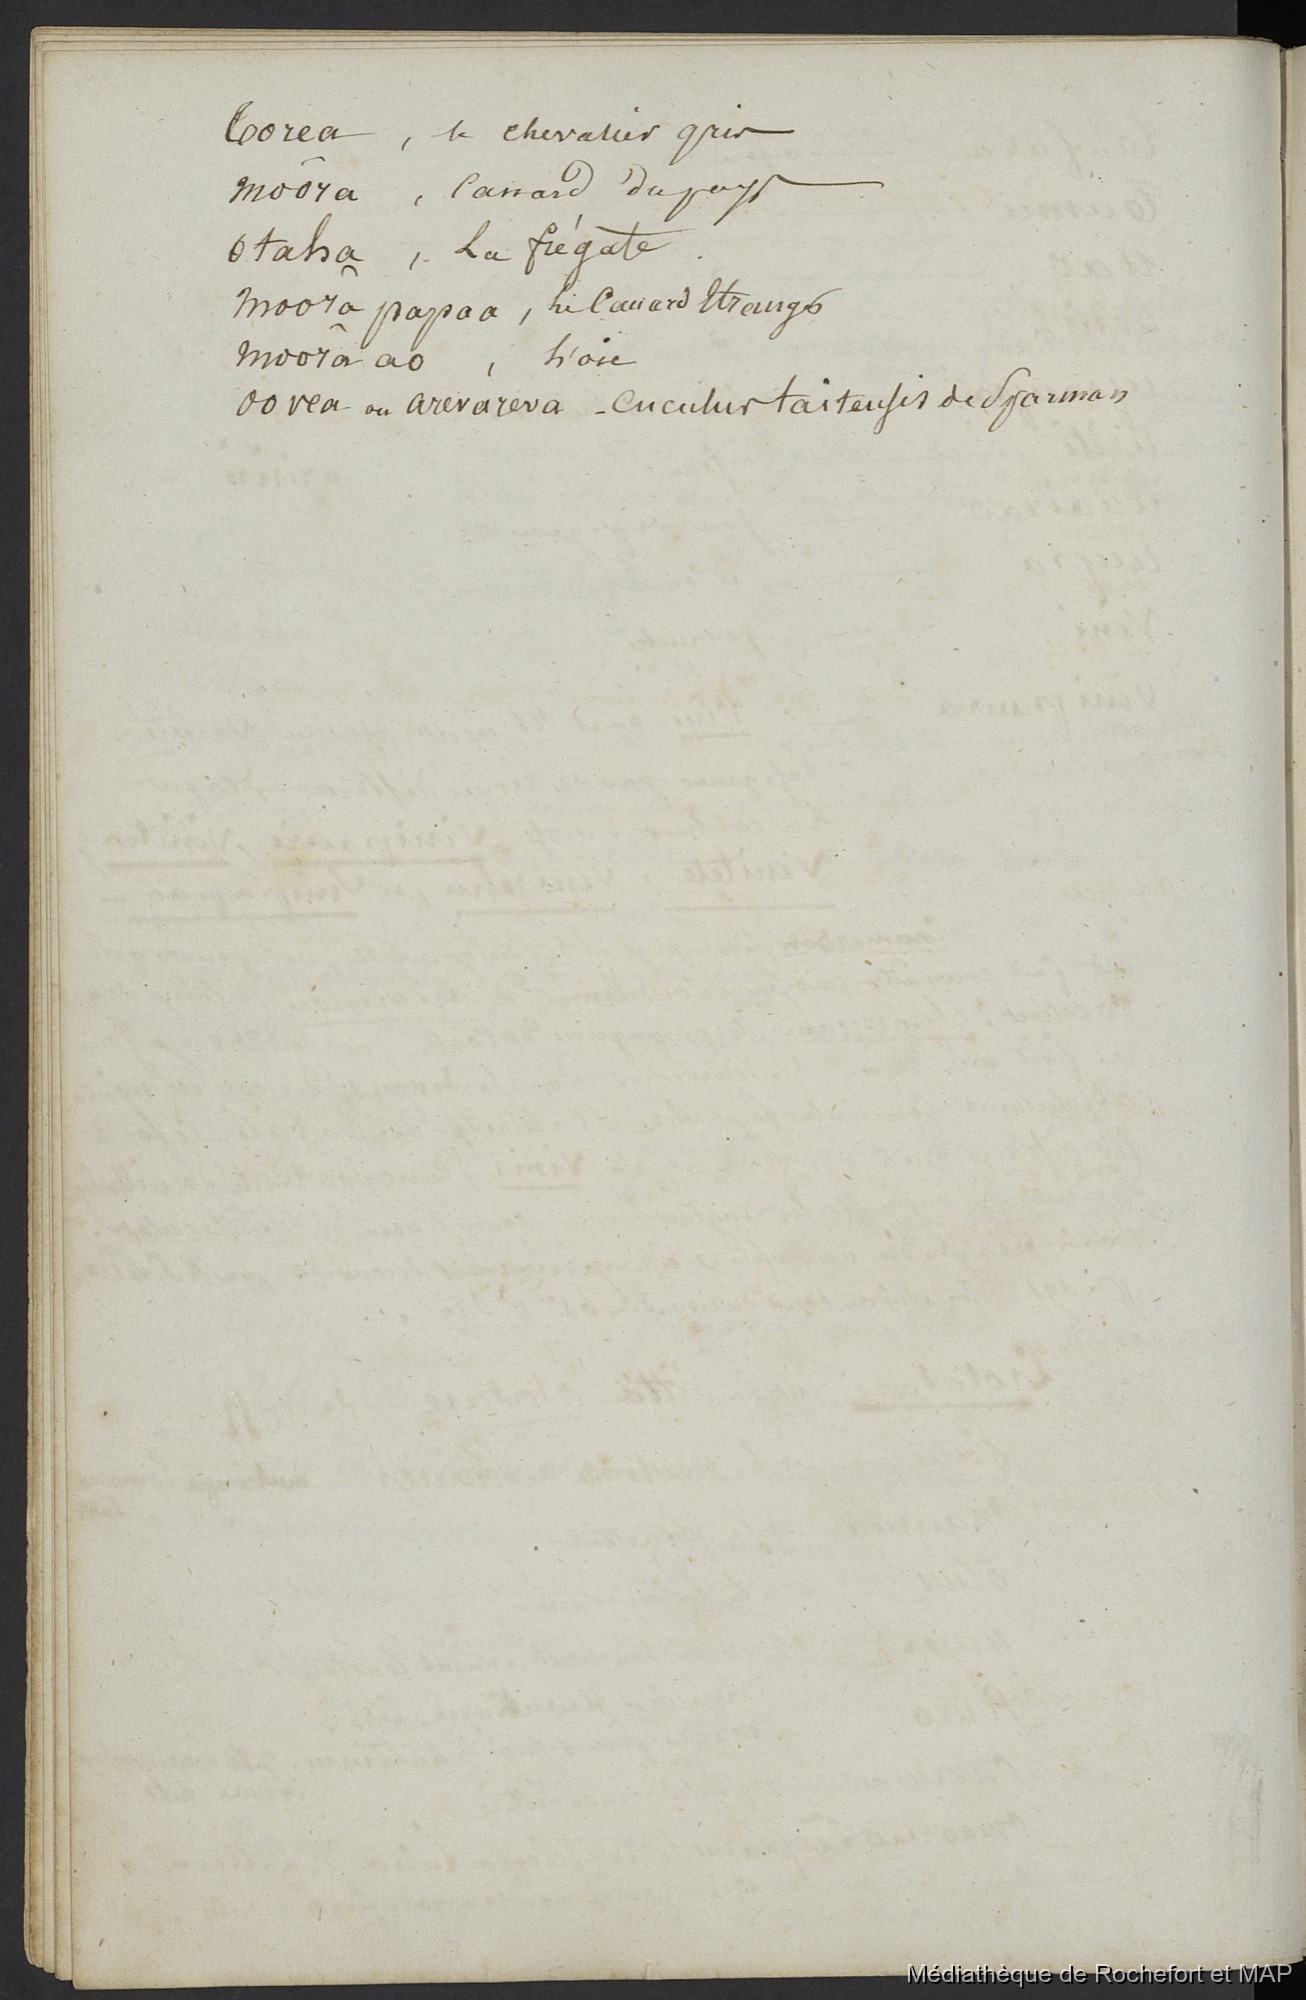 Torea, le chevalier gris
moôra, Canard du pays
otaha, La frégate.
moorâ papaa, Le Canard Etranger
moorâ ao, L'oie
oovea ou arevareva - Cuculus taitensis de Sparman
Médiathèque de Rochefort et MAP